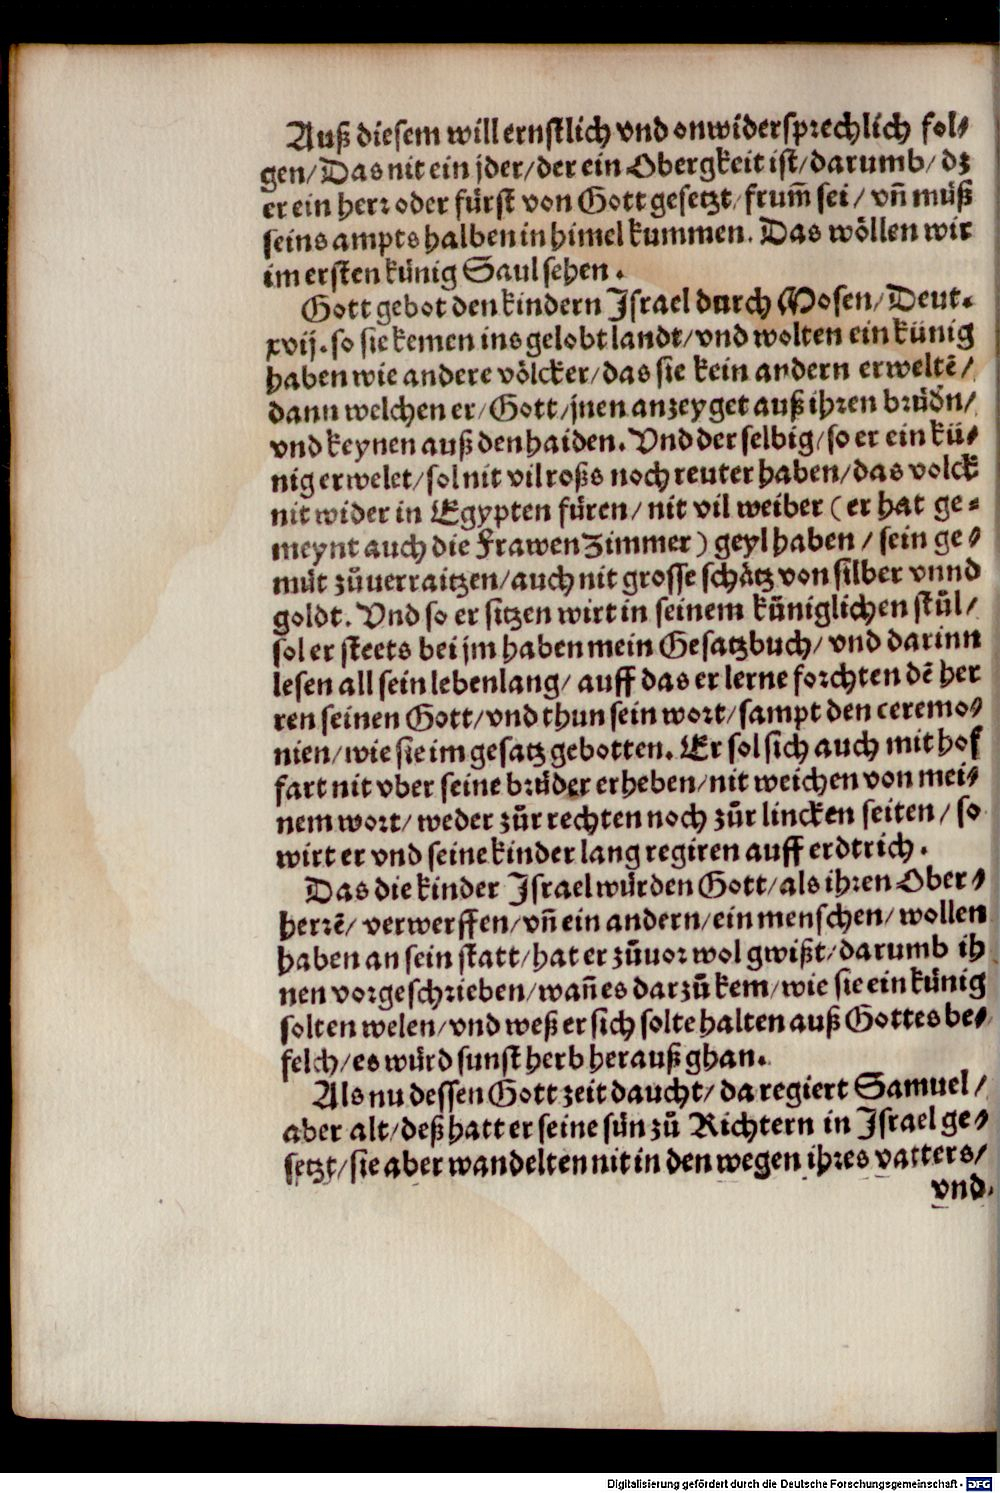 Auß diesem will ernstlich vnd onwidersprechlich fol⸗
gen/ Das nit ein jder/ der ein Obergkeit ist/ darumb/ dz
er ein herr oder fürst von Gott gesetzt/ frum̃ sei/ vñ müß
seins ampts halben in himel kummen. Das wöllen wir
im ersten künig Saul sehen.
Gott gebot den kindern Israel durch Mosen/ Deut.
xvij. so sie kemen ins gelobt landt/ vnd wolten ein künig
haben wie andere völcker/ das sie kein andern erweltē/
dann welchen er/ Gott/ jnen anzeyget auß ihren brüdn̄/
vnd keynen auß den haiden. Vnd der selbig/ so er ein kü⸗
nig erwelet/ sol nit vil roßs noch reuter haben/ das volck
nit wider in Egypten füren/ nit vil weiber (er hat ge⸗
meynt auch die Frawen Zimmer) geyl haben/ sein ge⸗
müt zůuerraitzen/ auch nit grosse schätz von silber vnnd
goldt. Vnd so er sitzen wirt in seinem küniglichen stůl/
sol er steets bei jm haben mein Gesatzbuch/ vnd darinn
lesen all sein lebenlang/ auff das er lerne forchten dē her
ren seinen Gott/ vnd thun sein wort/ sampt den ceremo⸗
nien/ wie sie im gesatz gebotten. Er sol sich auch mit hof
fart nit vber seine brüder erheben/ nit weichen von mei⸗
nem wort/ weder zůr rechten noch zůr lincken seiten/ so
wirt er vnd seine kinder lang regiren auff erdtrich.
Das die kinder Israel würden Gott/ als ihren Ober⸗
herrē/ verwerffen/ vñ ein andern/ ein menschen/ wollen
haben an sein statt/ hat er zůuor wol gwißt/ darumb ih
nen vorgeschrieben/ wañ es darzů kem/ wie sie ein künig
solten welen/ vnd weß er sich solte halten auß Gottes be⸗
felch/ es würd sunst herb herauß ghan.
Als nu dessen Gott zeit daucht/ da regiert Samuel/
aber alt/ deß hatt er seine sün zů Richtern in Israel ge⸗
setzt/ sie aber wandelten nit in den wegen ihres vatters/
vnd
Digitalisierung gefördert durch die Deutsche Forschungsgemeinschaft - DFG